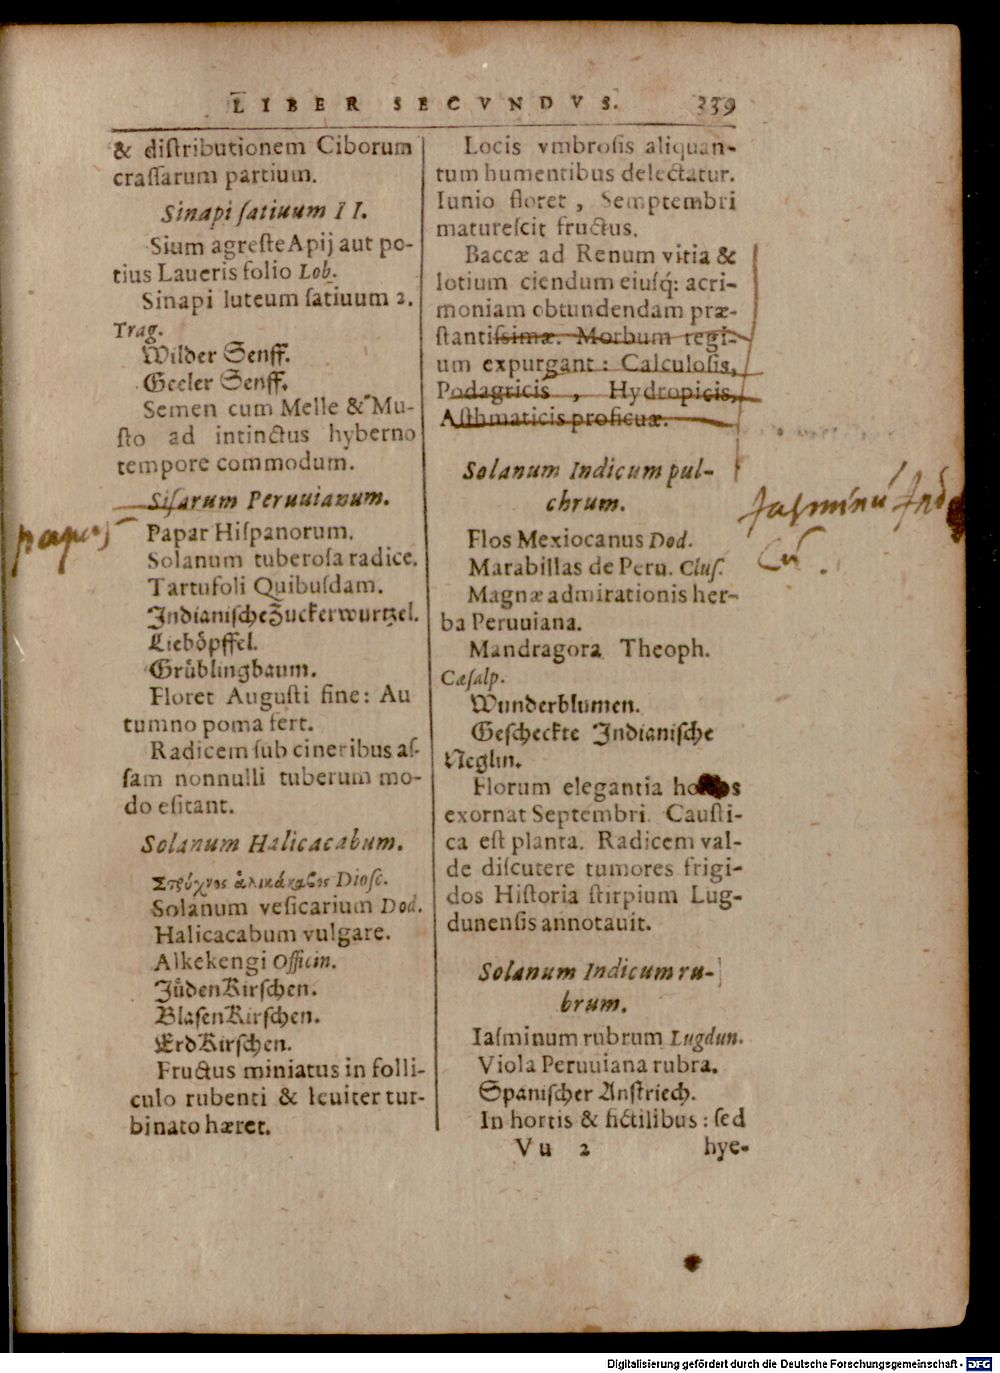 LIBER SECVNDVS. 339
& distributionem Ciborum
crassarum partium.
Sinapi satiuum II.
Sium agreste Apij aut po-
tius Laueris folio Lob.
Sinapi luteum satiuum 2.
Trag.
Wilder Senff.
Geeler Senff.
Semen cum Melle & Mu-
sto ad intinctus hyberno
tempore commodum.
Sisarum Peruuianum.
papas
Papar Hispanorum.
Solanum tuberosa radice.
Tartufoli Quibusdam.
Indianische Zuckerwurtzel.
Lieböpffel.
Grüblingbaum.
Floret Augusti fine: Au
tumno poma fert.
Radicem sub cineribus as-
sam nonnulli tuberum mo-
do esitant.
Solanum Halicacabum.
Στρύχνος ἁλικάκαβος Diosc.
Solanum vesicarium Dod.
Halicacabum vulgare.
Alkekengi Officin.
JůdenKirschen.
BlasenKirschen.
ErdKirschen.
Fructus miniatus in folli-
culo rubenti & leuiter tur-
binato hæret.
Locis vmbrosis aliquan-
tum humentibus delectatur.
Iunio floret, Semptembri
maturescit fructus.
Baccæ ad Renum vitia &
lotium ciendum eiusq́: acri-
moniam obtundendam præ-
stantissimæ. Morbum regi-
um expurgant: Calculosis,
Podagricis, Hydropicis,
Asthmaticis proficuæ.
Solanum Indicum pul-
chrum.
Jasminū Indi
cū.
Flos Mexiocanus Dod.
Marabillas de Peru. Clus.
Magnæ admirationis her-
ba Peruuiana.
Mandragora Theoph.
Cæsalp.
Wunderblumen.
Gescheckte Indianische
Neglin.
Florum elegantia hortos
exornat Septembri. Causti-
ca est planta. Radicem val-
de discutere tumores frigi-
dos Historia stirpium Lug-
dunensis annotauit.
Solanum Indicum ru-
brum.
Iasminum rubrum Lugdun.
Viola Peruuiana rubra.
Spanischer Anstriech.
In hortis & fictilibus: sed
Vu 2 hye-
Digitalisierung gefördert durch die Deutsche Forschungsgemeinschaft - DFG